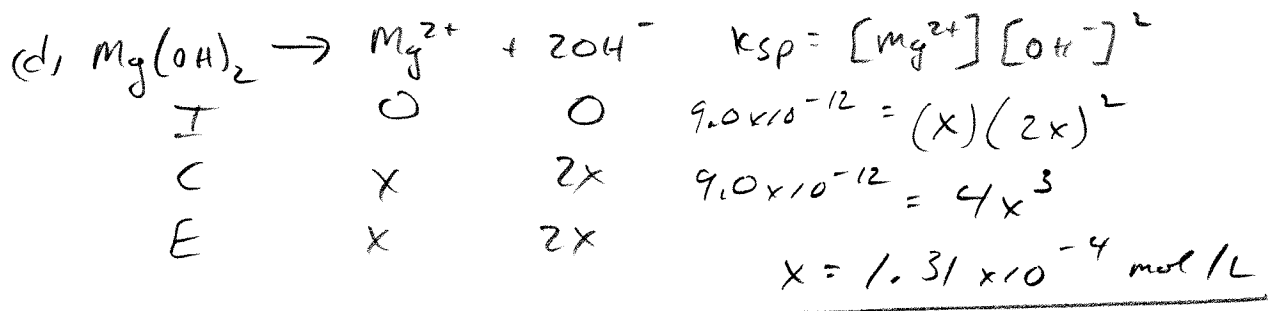 (d) Mg(OH)₂ → Mg²⁺ + 2OH⁻ Ksp = [Mg²⁺][OH⁻]²
I 0 0 9.0x10⁻¹² = (x)(2x)²
C x 2x 9.0x10⁻¹² = 4x³
E x 2x
x = 1.31 x10⁻⁴ mol/L